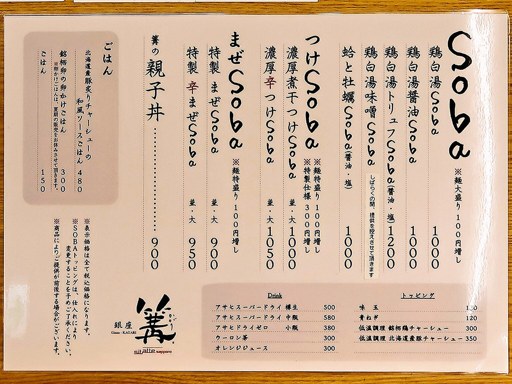 Soba ※麺大盛り100円増し
鶏白湯Soba 1000
鶏白湯醤油Soba 1000
鶏白湯トリュフSoba(醤油・塩) 1200
鶏白湯味噌Soba しばらくの間、提供を控えさせて頂きます
蛤と牡蠣Soba(醤油・塩) 1000
つけSoba ※麺特盛り100円増し
※特製仕様300円増し
濃厚煮干つけSoba 並・大 1000
濃厚辛つけSoba 並・大 1050
まぜSoba ※麺特盛り100円増し
特製まぜSoba 並・大 900
特製辛まぜSoba 並・大 950
篝の親子丼 900
ごはん
北海道産豚炙りチャーシューの
和風ソースごはん 480
銘柄卵の卵かけごはん 300
ごはん 150
※表示価格は全て税込価格になります。
※SOBAトッピングは、仕入れにより
変更することを予めご了承ください。
※商品によりご提供が前後する場合がございます。
銀座
篝
かがり
Ginza KAGARI
Drink
アサヒスーパードライ 樽生 500
アサヒスーパードライ 中瓶 580
アサヒドライゼロ 小瓶 380
ウーロン茶 300
オレンジジュース 300
トッピング
味玉
青ねぎ 120
低温調理 銘柄鶏チャーシュー 300
低温調理 北海道産豚チャーシュー 350